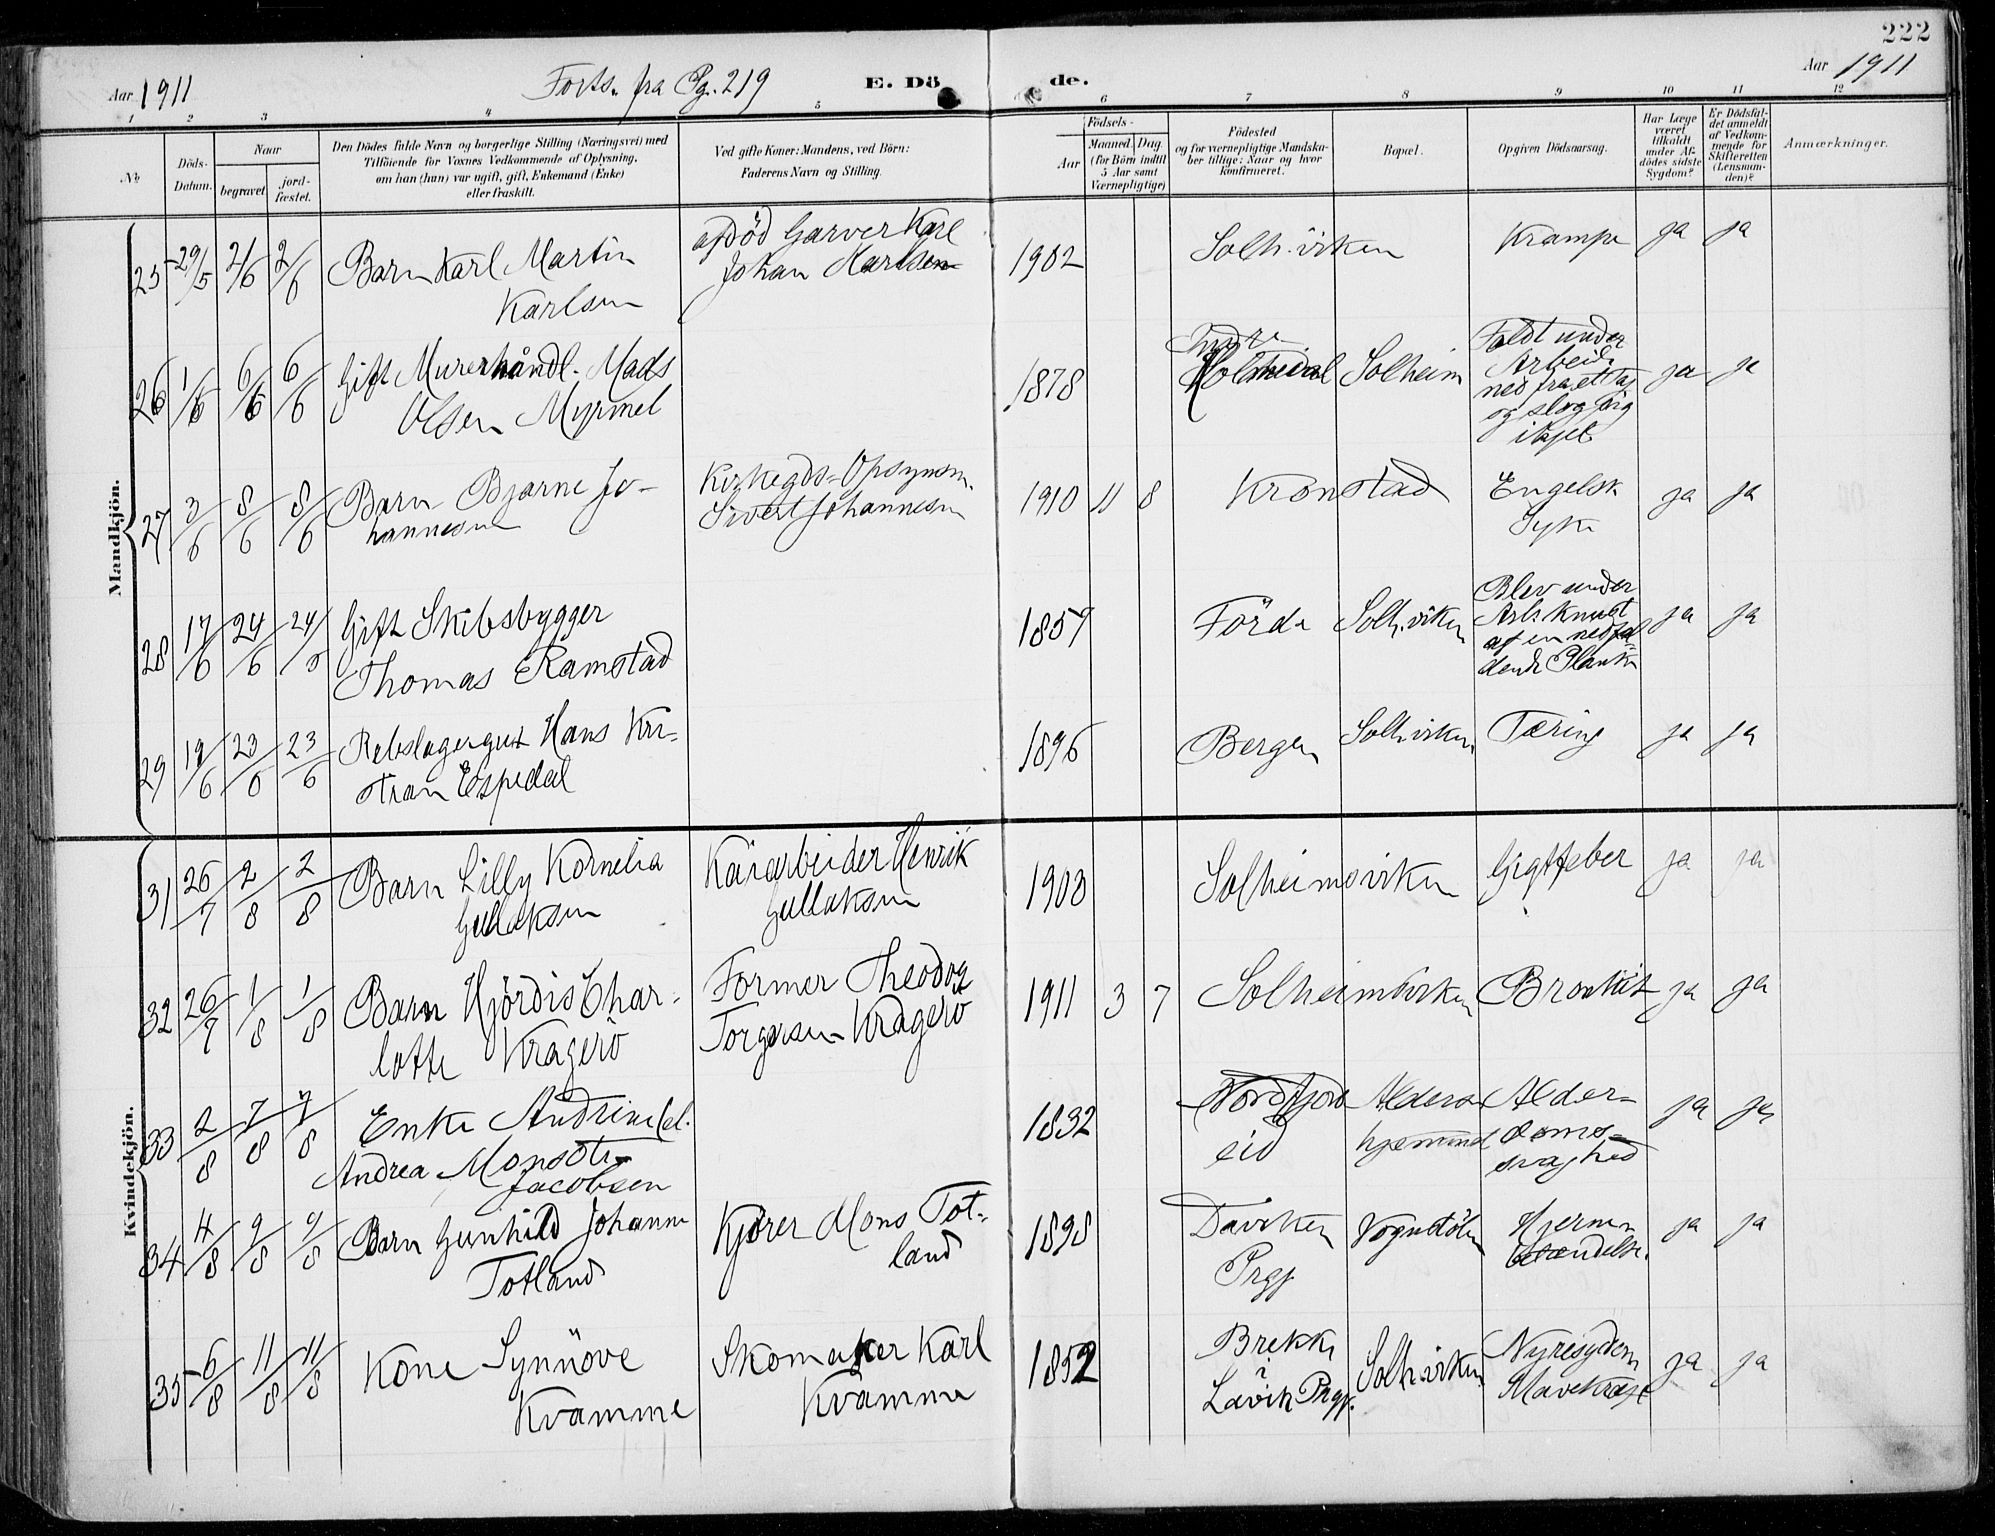 222
Aar 1911
Forts. fra Pg. 219
E. Dö
de.
Aar 1911
1 2 3 4 5 6 7 8 9 10 11 12
No
Döds-
Datum.
Naar
begravet
jord-
fæstet.
Den Dödes fulde Navn og borgerlige Stilling (Næringsvei) med
Tilföiende for Voxnes Vedkommende af Oplysning,
om han (hun) var ugift, gift, Enkemand (Enke)
eller fraskilt.
Ved gifte Koner: Mandens, ved Börn:
Faderens Navn og Stilling.
Födsels-
Aar
Maaned. Dag.
(for Börn indtil
5 Aar samt
Værnepligtige)
Födested
og for værnepligtige Mandska-
ber tillige: Naar og hvor
konfirmeret.
Bopæl.
Opgiven Dödsaarsag.
Har Læge
været
tilkaldt
under Af-
dödes sidste
Sygdom?
Er Dödsfal-
det anmeldt
af Vedkom-
mende for
Skifteretten
(Lensman-
den)?
Anmærkninger.
Mandkjön.
25 29/5 2/6 2/6 Barn Karl Martin
Karlsen
afdöd Garver Karl
Johan Karlsen
1902 Solh.viken Krampe ja ja
26 1/6 6/6 6/6 Gift Murerhåndl. Mads
Olsen Myrmel
1878 Indre
Holmedal Solheim Faldt under
Arbeide
ned fra et tag
og slog sig
ihjel
ja ja
27 3/6 8/6 8/6 Barn Bjarne Jo-
hannesen
Kirkegds-Opsynsm.
Sivert Johannesen
1910 11 8 Kronstad Engelsk
Syke
ja ja
28 17/6 24/6 24/6 Gift Skibsbygger
Thomas Ramstad
1857 Förde Solh.viken Blev under
Arb. knust
af en nedfal-
dende Planke
ja ja
29 19/6 23/6 23/6 Rebslagergut Hans Kri-
stian Espedal
1896 Bergen Solh.viken Tæring ja ja
Kvindekjön.
31 26/7 2/8 2/8 Barn Lilly Kornelia
Gullaksen
Kaiarbeider Henrik
Gullaksen
1903 Solheimsviken Gigtfeber ja ja
32 26/7 1/8 1/8 Barn Hjördis Char-
lotte Kragerö
Former Theodor
Torgersen Kragerö
1911 3 7 Solheimsviken Bronkit ja ja
33 2/8 7/8 7/8 Enke Andrine el.
Andrea Monsdtr
Jacobsen
1832 Nordfjord
eid
Alders
hjemmet
Alder-
doms-
svaghed
ja ja
34 4/8 9/8 9/8 Barn Gunhild Johanne
Totland
Kjörer Mons Tot-
land
1898 Daviken
Prgj Vognstölen Hjerne-
betændelse.
ja ja
35 6/8 11/8 11/8 Kone Synnöve
Kvamme
Skomaker Karl
Kvamme
1852 Brekke
i
Lavik Prgj. Solh.viken Nyresygdom
Mavekræft
ja ja